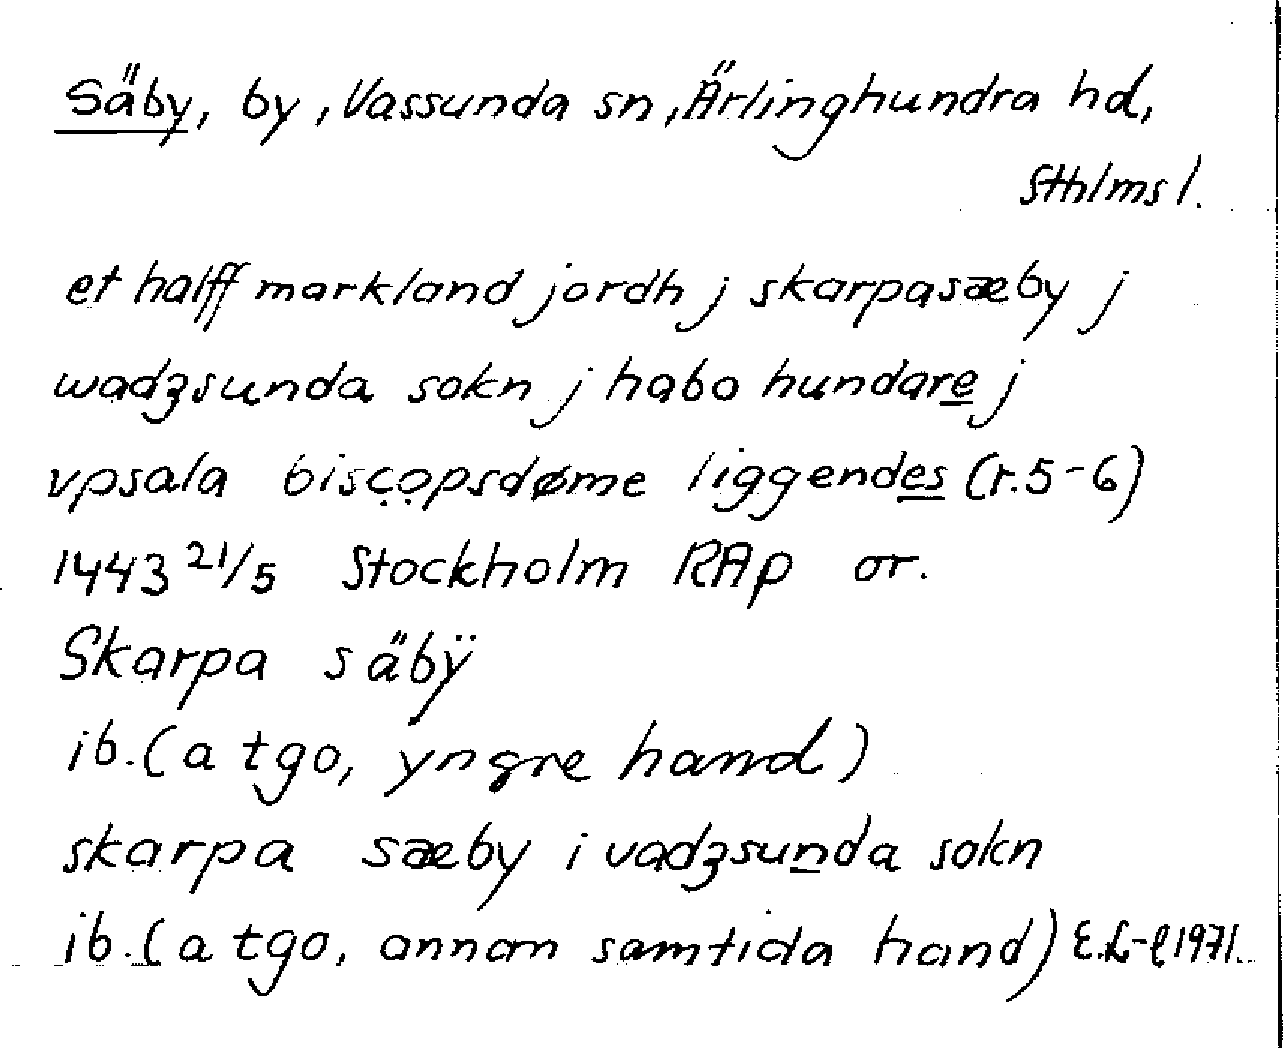 Säby, by, Vassunda sn, Ärlinghundra hd,
Sthlms l.
et halff markland jordh j skarpasæby j
wadzsunda sokn j habo hundare j
vpsala biscopsdøme liggendes (r.5-6)
1443 21/5 Stockholm RAp or.
Skarpa säbÿ
ib. (a tgo, yngre hand)
skarpa sæby i vadzsunda sokn
ib. (a tgo, annan samtida hand) E.L-l 1971.